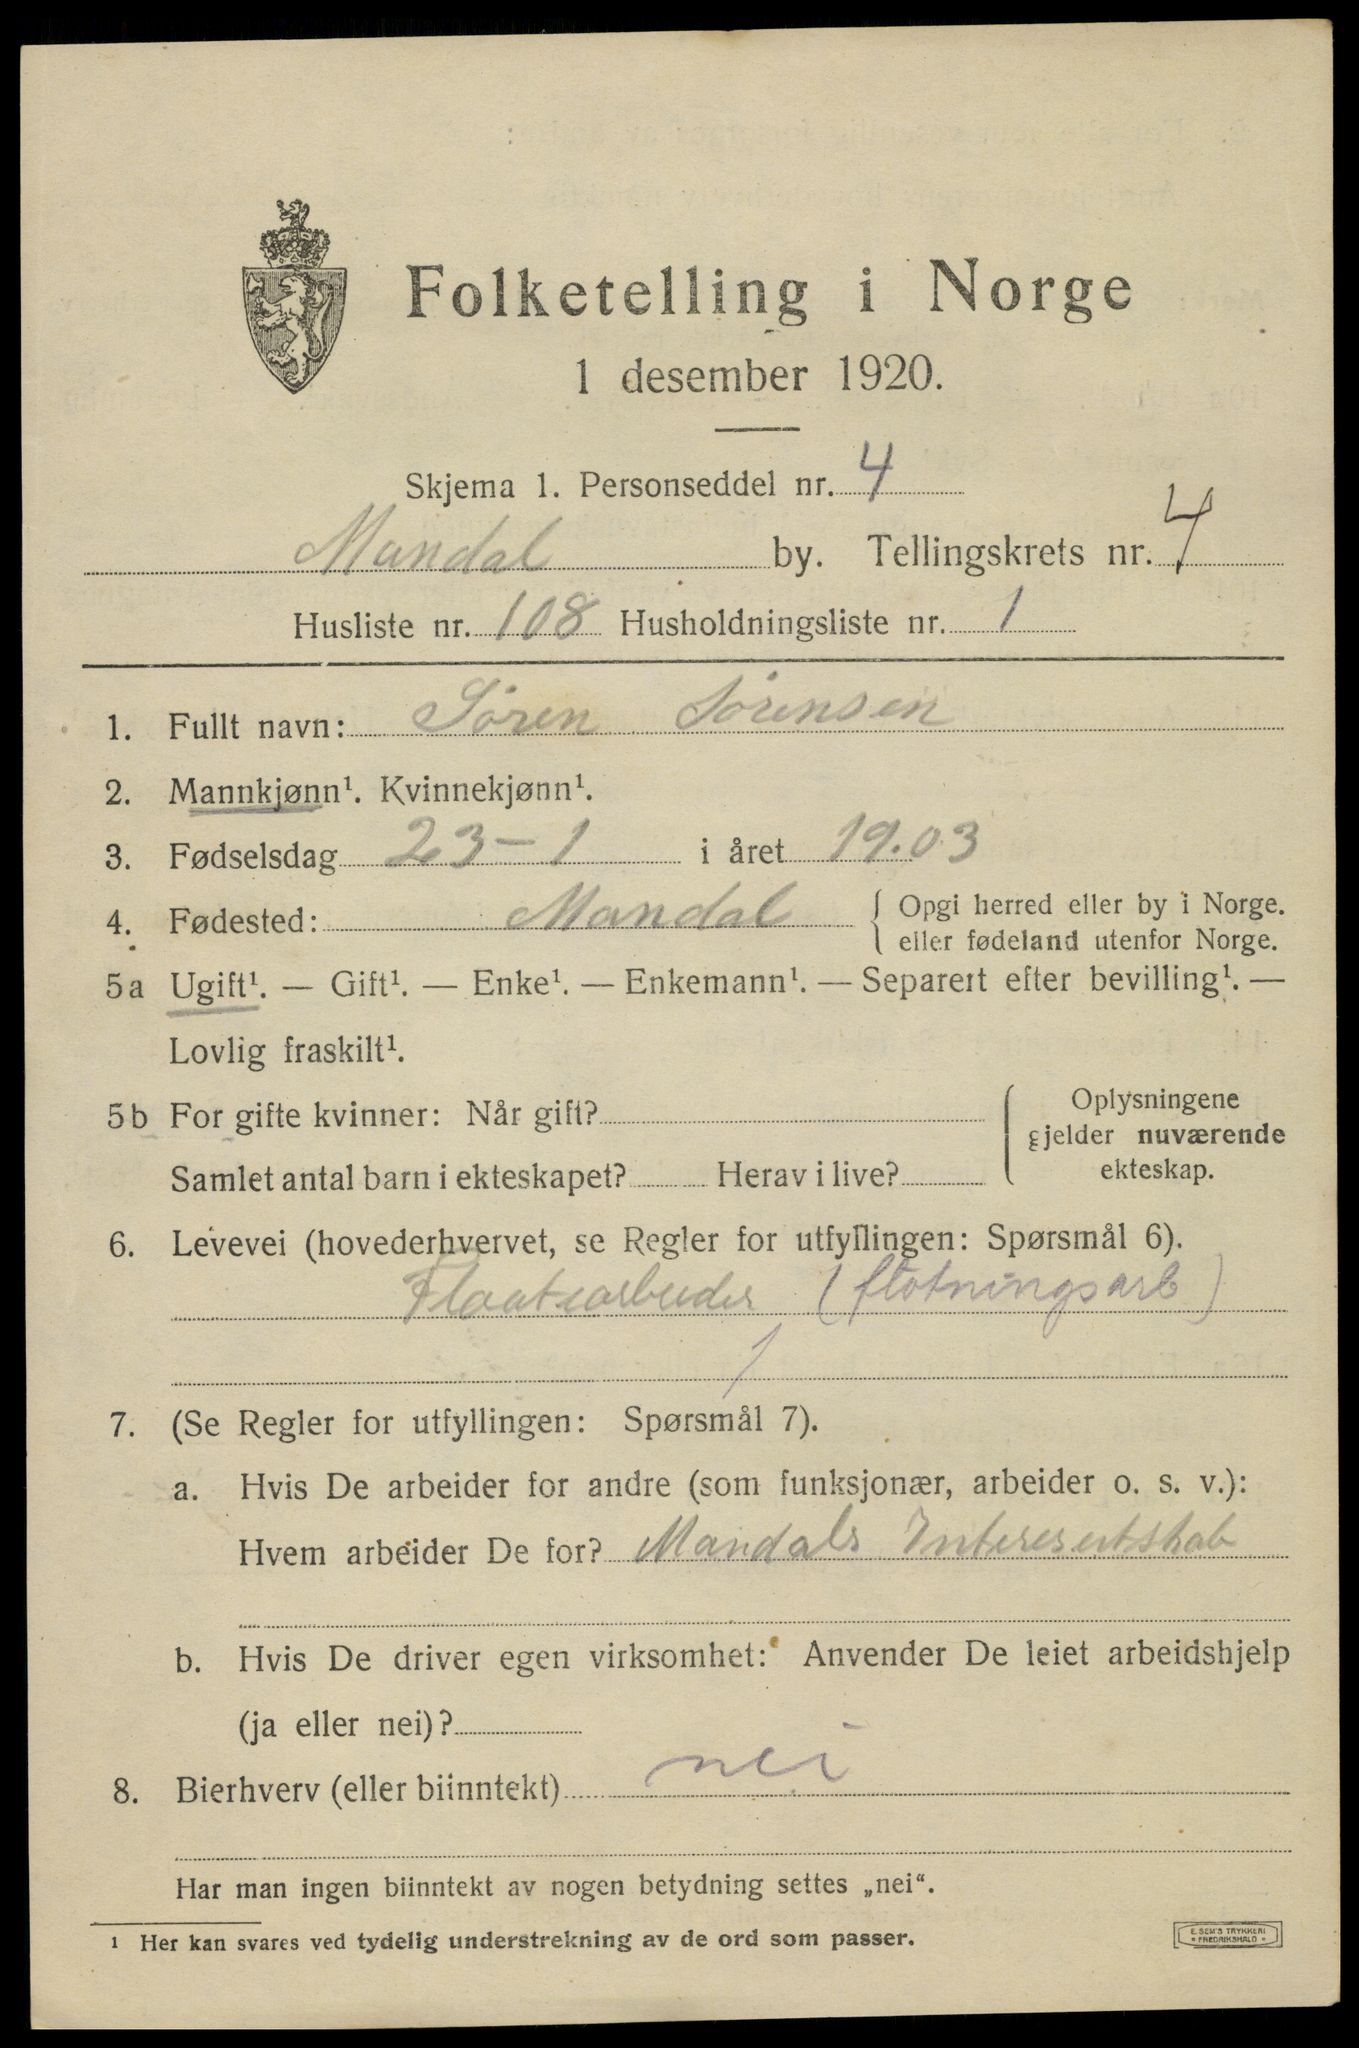 Folketelling i Norge
1 desember 1920.
Skjema 1. Personseddel nr. 4
Mandal by. Tellingskrets nr. 4
Husliste nr. 108 Husholdningsliste nr. 1
1. Fullt navn: Sören Sörensen
2. Mannkjønn¹. Kvinnekjønn¹.
3. Fødselsdag 23-1 i året 19.03
4. Fødested: Mandal { Opgi herred eller by i Norge.
eller fødeland utenfor Norge.
5a Ugift¹. — Gift¹. — Enke¹. — Enkemann¹. — Separert efter bevilling¹. —
Lovlig fraskilt¹.
5b For gifte kvinner: Når gift?
Oplysningene
gjelder nuværende
ekteskap.
Samlet antal barn i ekteskapet? Herav i live?
6. Levevei (hovederhvervet, se Regler for utfyllingen: Spørsmål 6).
Flaatearbeider (fløtningsarb)
7. (Se Regler for utfyllingen: Spørsmål 7).
a. Hvis De arbeider for andre (som funksjonær, arbeider o. s. v.):
Hvem arbeider De for? Mandals Interesentskab
b. Hvis De driver egen virksomhet: Anvender De leiet arbeidshjelp
(ja eller nei)?
8. Bierhverv (eller biinntekt) nei
Har man ingen biinntekt av nogen betydning settes „nei“.
1 Her kan svares ved tydelig understrekning av de ord som passer.
E. SEM'S TRYKKERI
FREDRIKSHALD